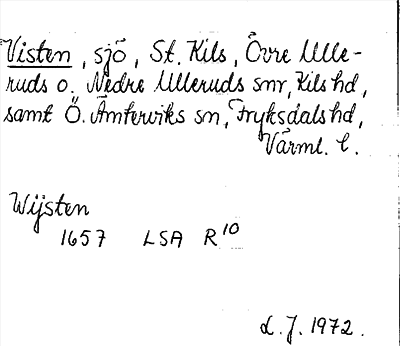 Visten, sjö, St. Kils, Övre Ulle-
ruds o. Nedre Ulleruds snr, Kils hd,
samt Ö. Ämterviks sn, Fryksdals hd,
Värml. l.
Wijsten
1657 LSA R10
L.J. 1972.